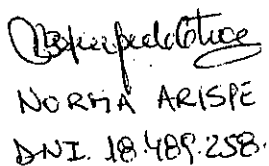 NORMA ARISPE
DNI. 18.489.258.